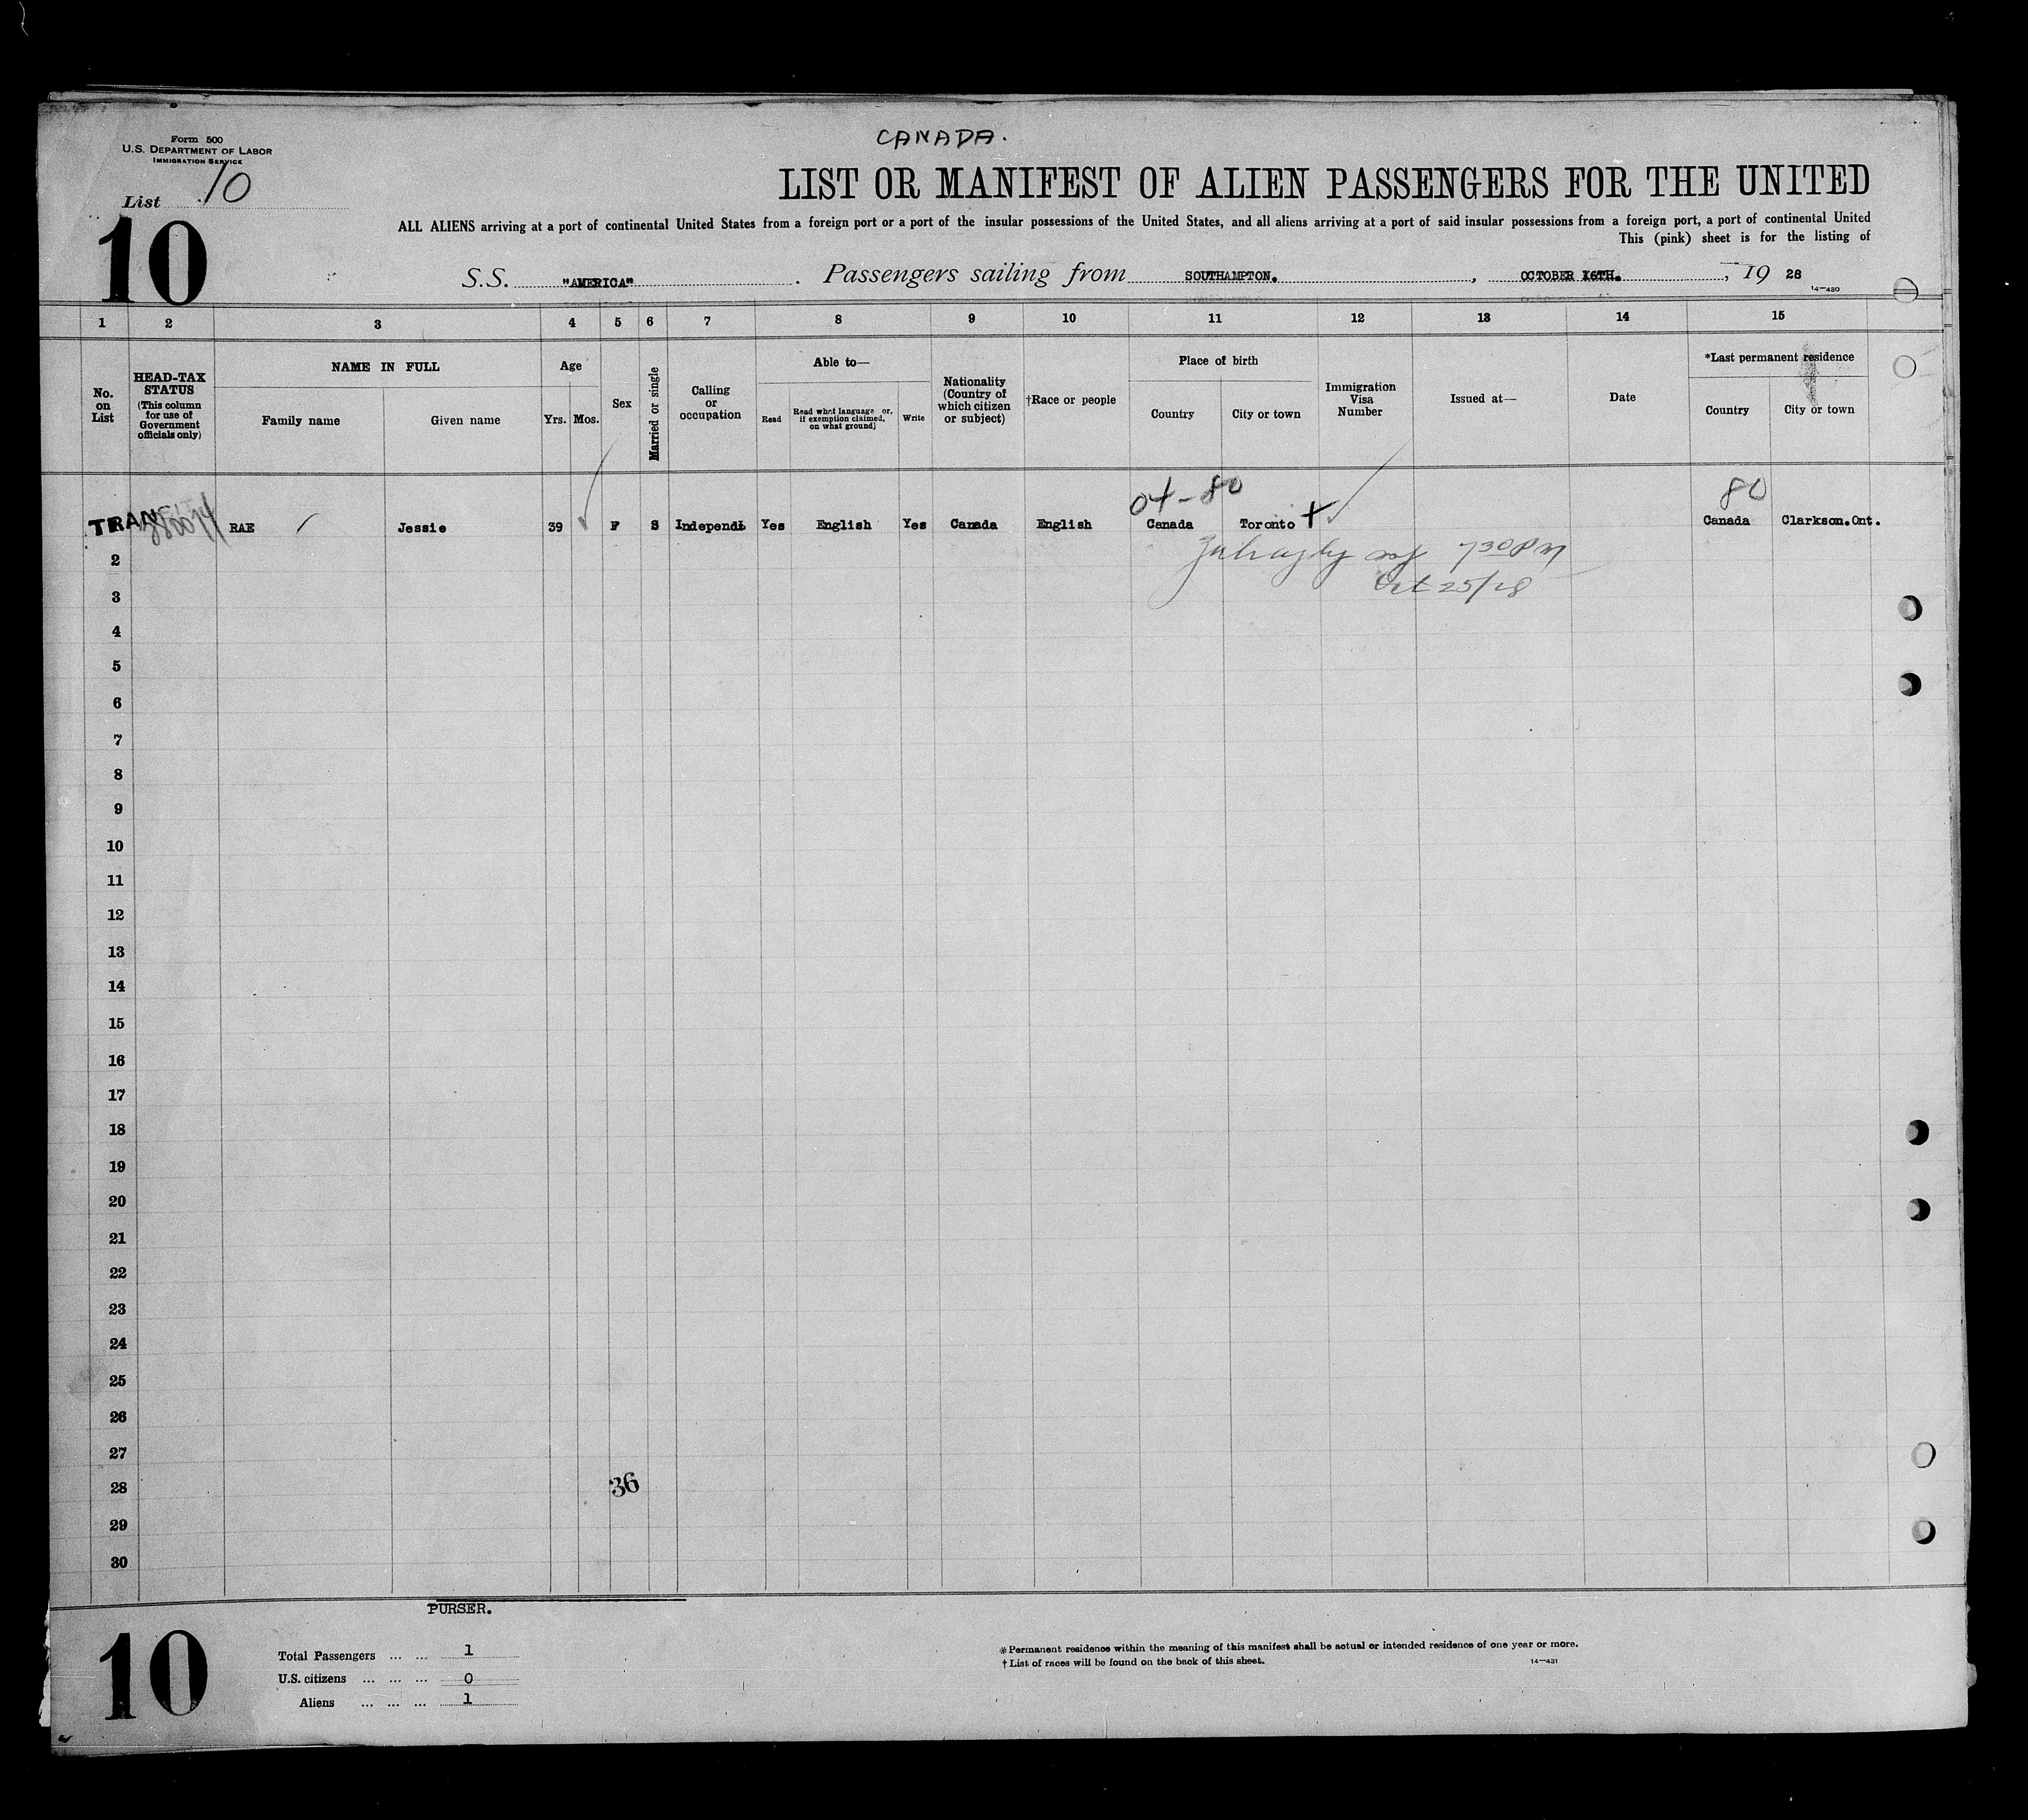 CANADA.
Form 500
U.S. DEPARTMENT OF LABOR
IMMIGRATION SERVICE
List 10
10
LIST OR MANIFEST OF ALIEN PASSENGERS FOR THE UNITED
ALL ALIENS arriving at a port of continental United States from a foreign port or a port of the insular possessions of the United States, and all aliens arriving at a port of said insular possessions from a foreign port, a port of continental United
This (pink) sheet is for the listing of
S.S. "AMERICA" . Passengers sailing from SOUTHAMPTON. , OCTOBER 16TH. , 19 28
14—430
1 2 3 4 5 6 7 8 9 10 11 12 13 14 15
No. on List
HEAD-TAX STATUS (This column for use of Government officials only)
NAME IN FULL
Family name Given name
Age
Yrs. Mos.
Sex
Married or single
Calling or occupation
Able to—
Read
Read what language or, if exemption claimed, on what ground]
Write
Nationality (Country of which citizen or subject)
†Race or people
Place of birth
Country City or town
Immigration Visa Number
Issued at—
Date
*Last permanent residence
Country City or town
04-80 80
RAE Jessie 39 F S Independt Yes English Yes Canada English Canada Toronto Canada Clarkson.Ont.
730PM
2
Oct 25/28
3
4
5
6
7
8
9
10
11
12
13
14
15
16
17
18
19
20
21
22
23
24
25
26
27
28 36
29
30
PURSER.
10
Total Passengers ... ... 1
U.S. citizens ... ... ... 0
Aliens ... ... ... 1
*Permanent residence within the meaning of this manifest shall be actual or intended residence of one year or more.
†List of races will be found on the back of this sheet.
14—431